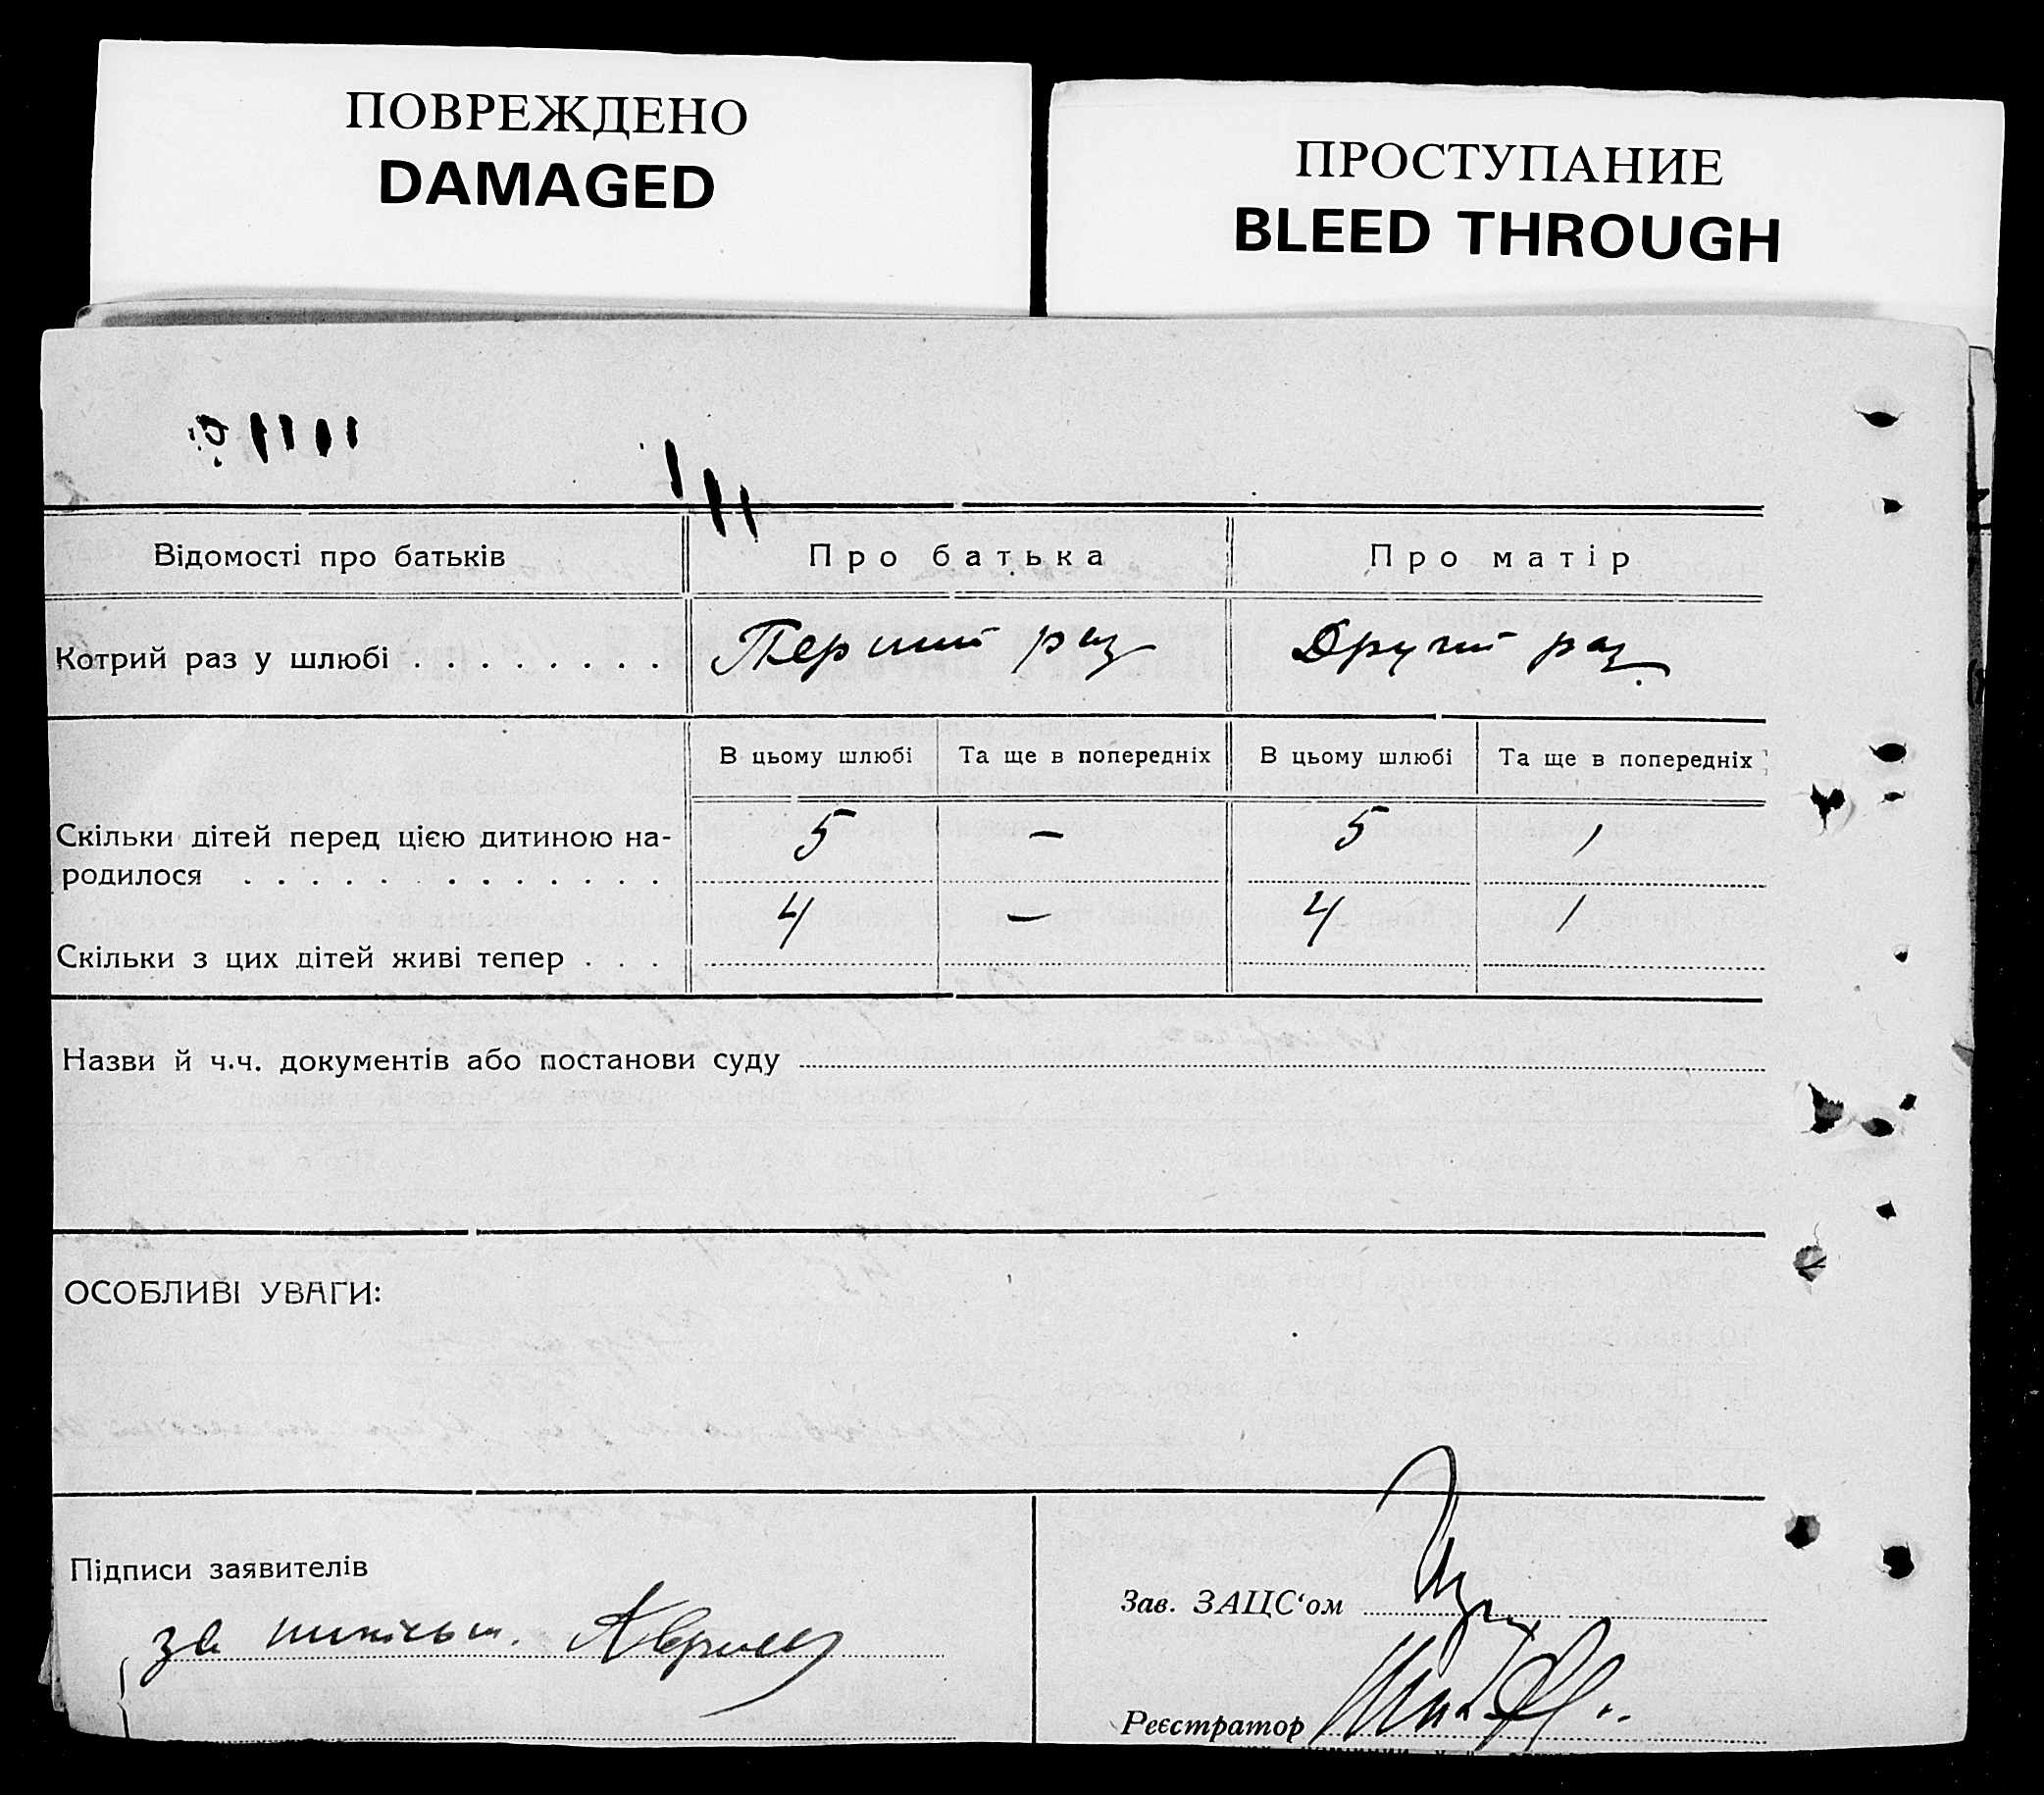 ПОВРЕЖДЕНО
DAMAGED
ПРОСТУПАНИЕ
BLEED THROUGH
Відомості про батьків Про батька Про матір
Котрий раз у шлюбі . . . . . . . . Перший раз Другий раз.
В цьому шлюбі Та ще в попередніх В цьому шлюбі Та ще в попередніх
Скільки дітей перед цією дитиною на- 5 — 5 1
родилося . . . . . . . . . . . . .
Скільки з цих дітей живі тепер . . . 4 — 4 1
Назви й ч.ч. документів або постанови суду
ОСОБЛИВІ УВАГИ:
Підписи заявителів
за
Зав. ЗАЦС‘ом
Реєстратор